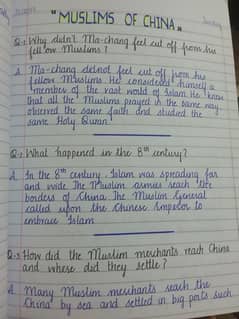 "MUSLIMS OF CHINA"
Q:1 Why didn't Ma-chang feel cut off from his
fellow Muslims?
A Ma-chang did not feel cut off from his
fellow Muslims. He considered himself a
member of the vast world of Islam. He knew
that all the Muslims prayed in the same way
observed the same faith and studied the
same Holy Quran.
Q:2 What happened in the 8th century?
A In the 8th century, Islam was spreading far
and wide. The Muslim armies reach the
borders of China. The Muslim General
called upon the Chinese Emperor to
embrace Islam
Q:3 How did the Muslim merchants reach China
and where did they settle?
A Many Muslim merchants reach the
China by sea and settled in big ports such